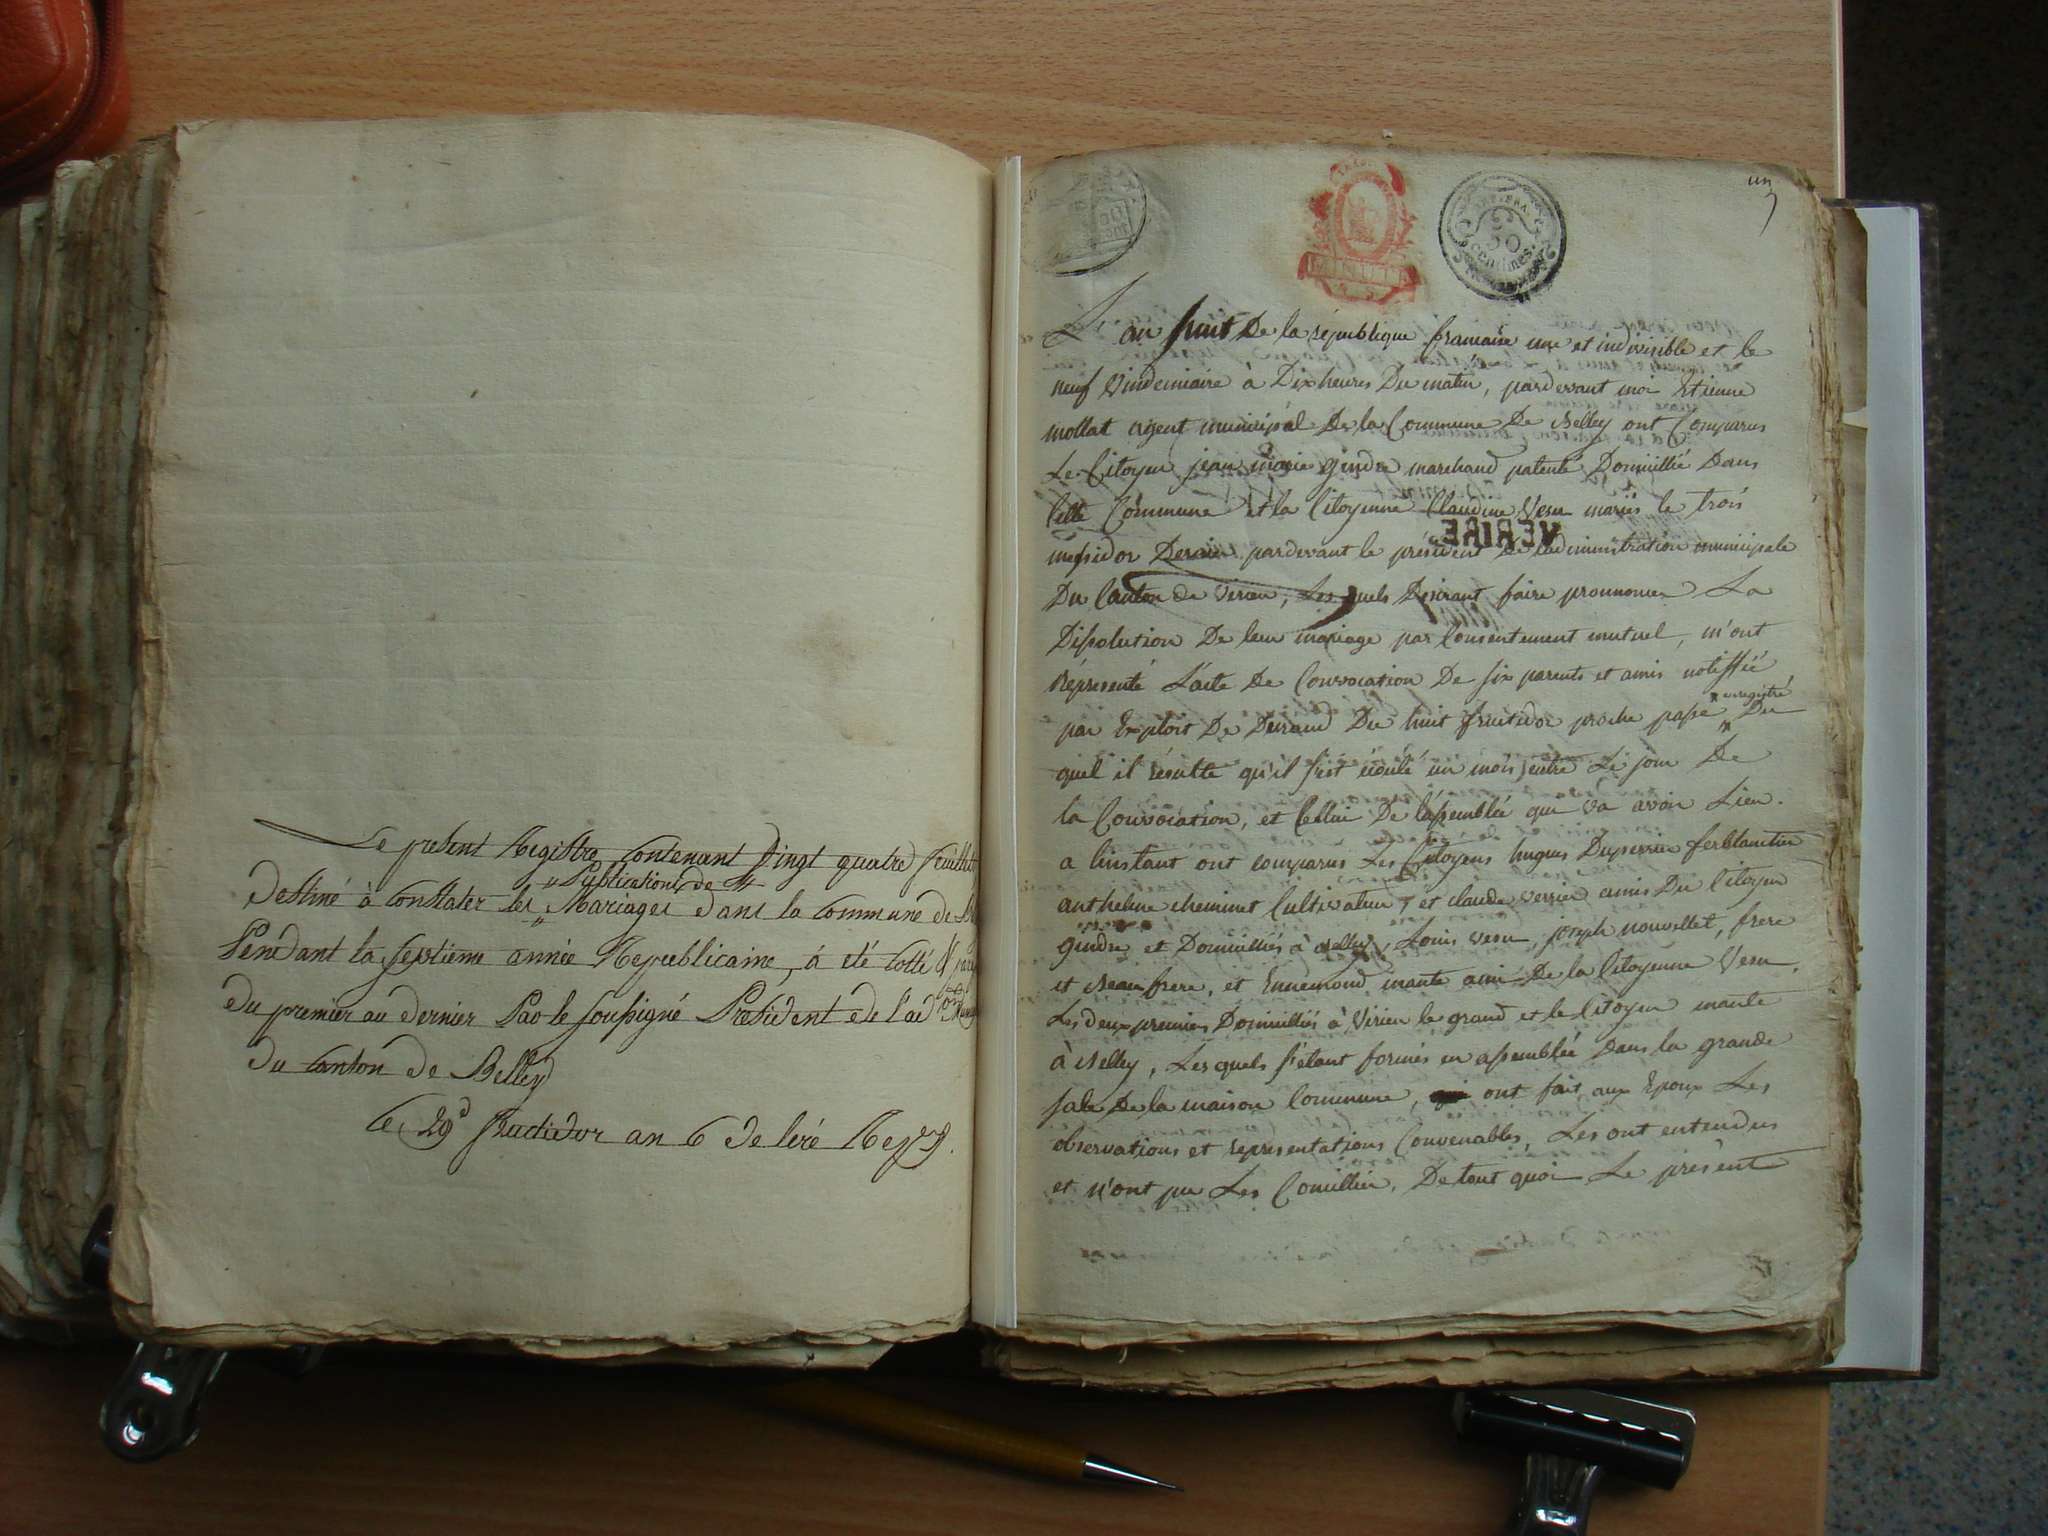 Le present Registre contenant Vingt quatre feuillets
destiné à constater les "Publications de" Mariages dans la Commune de
Pendant la septieme année Republicaine, á eté cotté &
du premier au dernier Par le soussigné President de l'ad.on
du Canton de Belley
Ce 29 fructidor an 6 de l'ere
un
MINUTE
50
centimes
L'an huit De la république francaise une et indivisible et le
neuf Vindemiaire à Dix heures Du matin, pardevant moi Etienne
mollat agent municipal De la Commune De Belley ont Comparus
Le Citoyen jean marie gindre marchand patenté Domicillié Dans
Cette Commune et la Citoyenne Claudine Vesu mariés le trois
VERIRE
messidor Dernier pardevant le président De Ladministration municipale
Du Canton de Virieu, Les quels Desirant faire prounoncer La
Dissolution De leur mariage par Consentement mutuel, m'ont
représenté L'acte De Convocation De six parents et amis notiffié
par Exploit De Durand Du huit fructidor proche passé enregistré Du
quel il résulte qu'il s'est écoulé un mois entre Le jour De
la Convocation, et Cellui De l'assemblée qui va avoir Lieu.
a l'instant ont comparus Les Citoyens hugues Duperrier ferblantier
anthelme cheminet Cultivateur, et claude verrier amis Du Citoyen
gindre et Domicilliés à Belley, Louis vesu, joseph nouvellet, frere
et Beau frere, et Ennemond mante ami De la Citoyenne Vesu,
Les deux premiers Domicilliés à Virieu le grand et le Citoyen mante
à Belley, Les quels s'étant formés en assemblée Dans la grande
sale De la maison Commune, ont fait aux Epoux Les
observations et représentations Convenables, Les ont entendus
et n'ont pu Les Concillier, De tout quoi Le présent